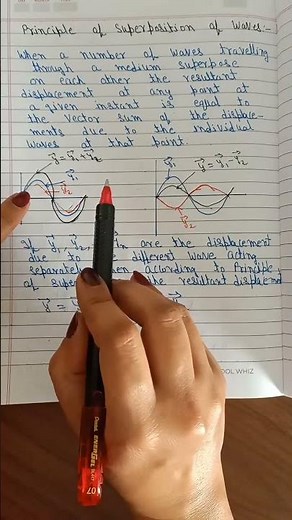 Principle of Superposition of Waves:-
When a number of waves travelling
through a medium superpose
on each other the resultant
displacement at any point at
a given instant is equal to
the vector sum of the displace-
ments due to the individual
waves at that point.
y⃗ = y⃗1 + y⃗2
y⃗1
y⃗2
y⃗1
y⃗ = y⃗1 - y⃗2
y⃗2
If y⃗1, y⃗2, y⃗n are the displacement
due to different wave acting
separately according to Principle
of the resultant
y⃗ =
OOL WHIZ
Pentel ENERGEL
07